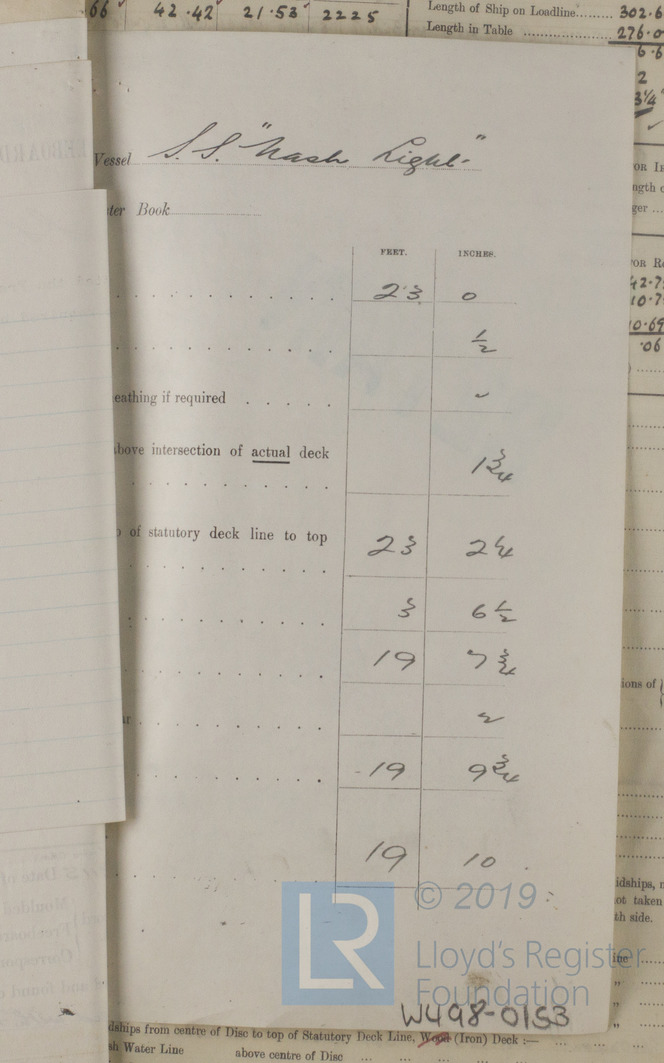 66 42.42 21.53 2225
Length of Ship on Loadline......... 302.6
Length in Table ..................... 276.0
6.6
2
3¼
Vessel S.S. "Nash Light"
ter Book
FEET. INCHES.
23 0
½
eathing if required
bove intersection of actual deck
1¾
of statutory deck line to top
23 2¼
3 6½
19 7¾
r 2
19 9¾
19 10
OR
ngth
ger ...
OR
42.7
10.7
10.69
.06
ions of
idships,
ot taken
th side.
© 2019
LR
Lloyd's Register
Foundation
W498-0153
dships from centre of Disc to top of Statutory Deck Line, Wood (Iron) Deck :—
sh Water Line above centre of Disc